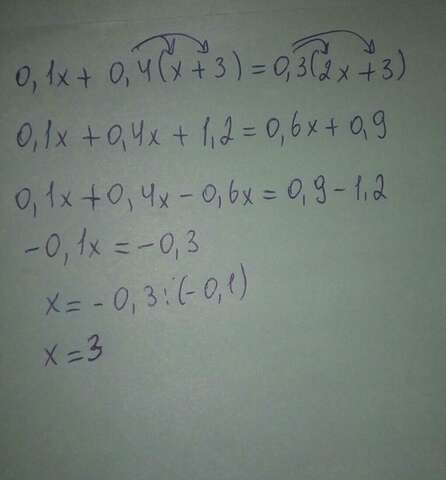 0,1x + 0,4(x + 3) = 0,3(2x + 3)
0,1x + 0,4x + 1,2 = 0,6x + 0,9
0,1x + 0,4x - 0,6x = 0,9 - 1,2
-0,1x = -0,3
x = -0,3 : (-0,1)
x = 3